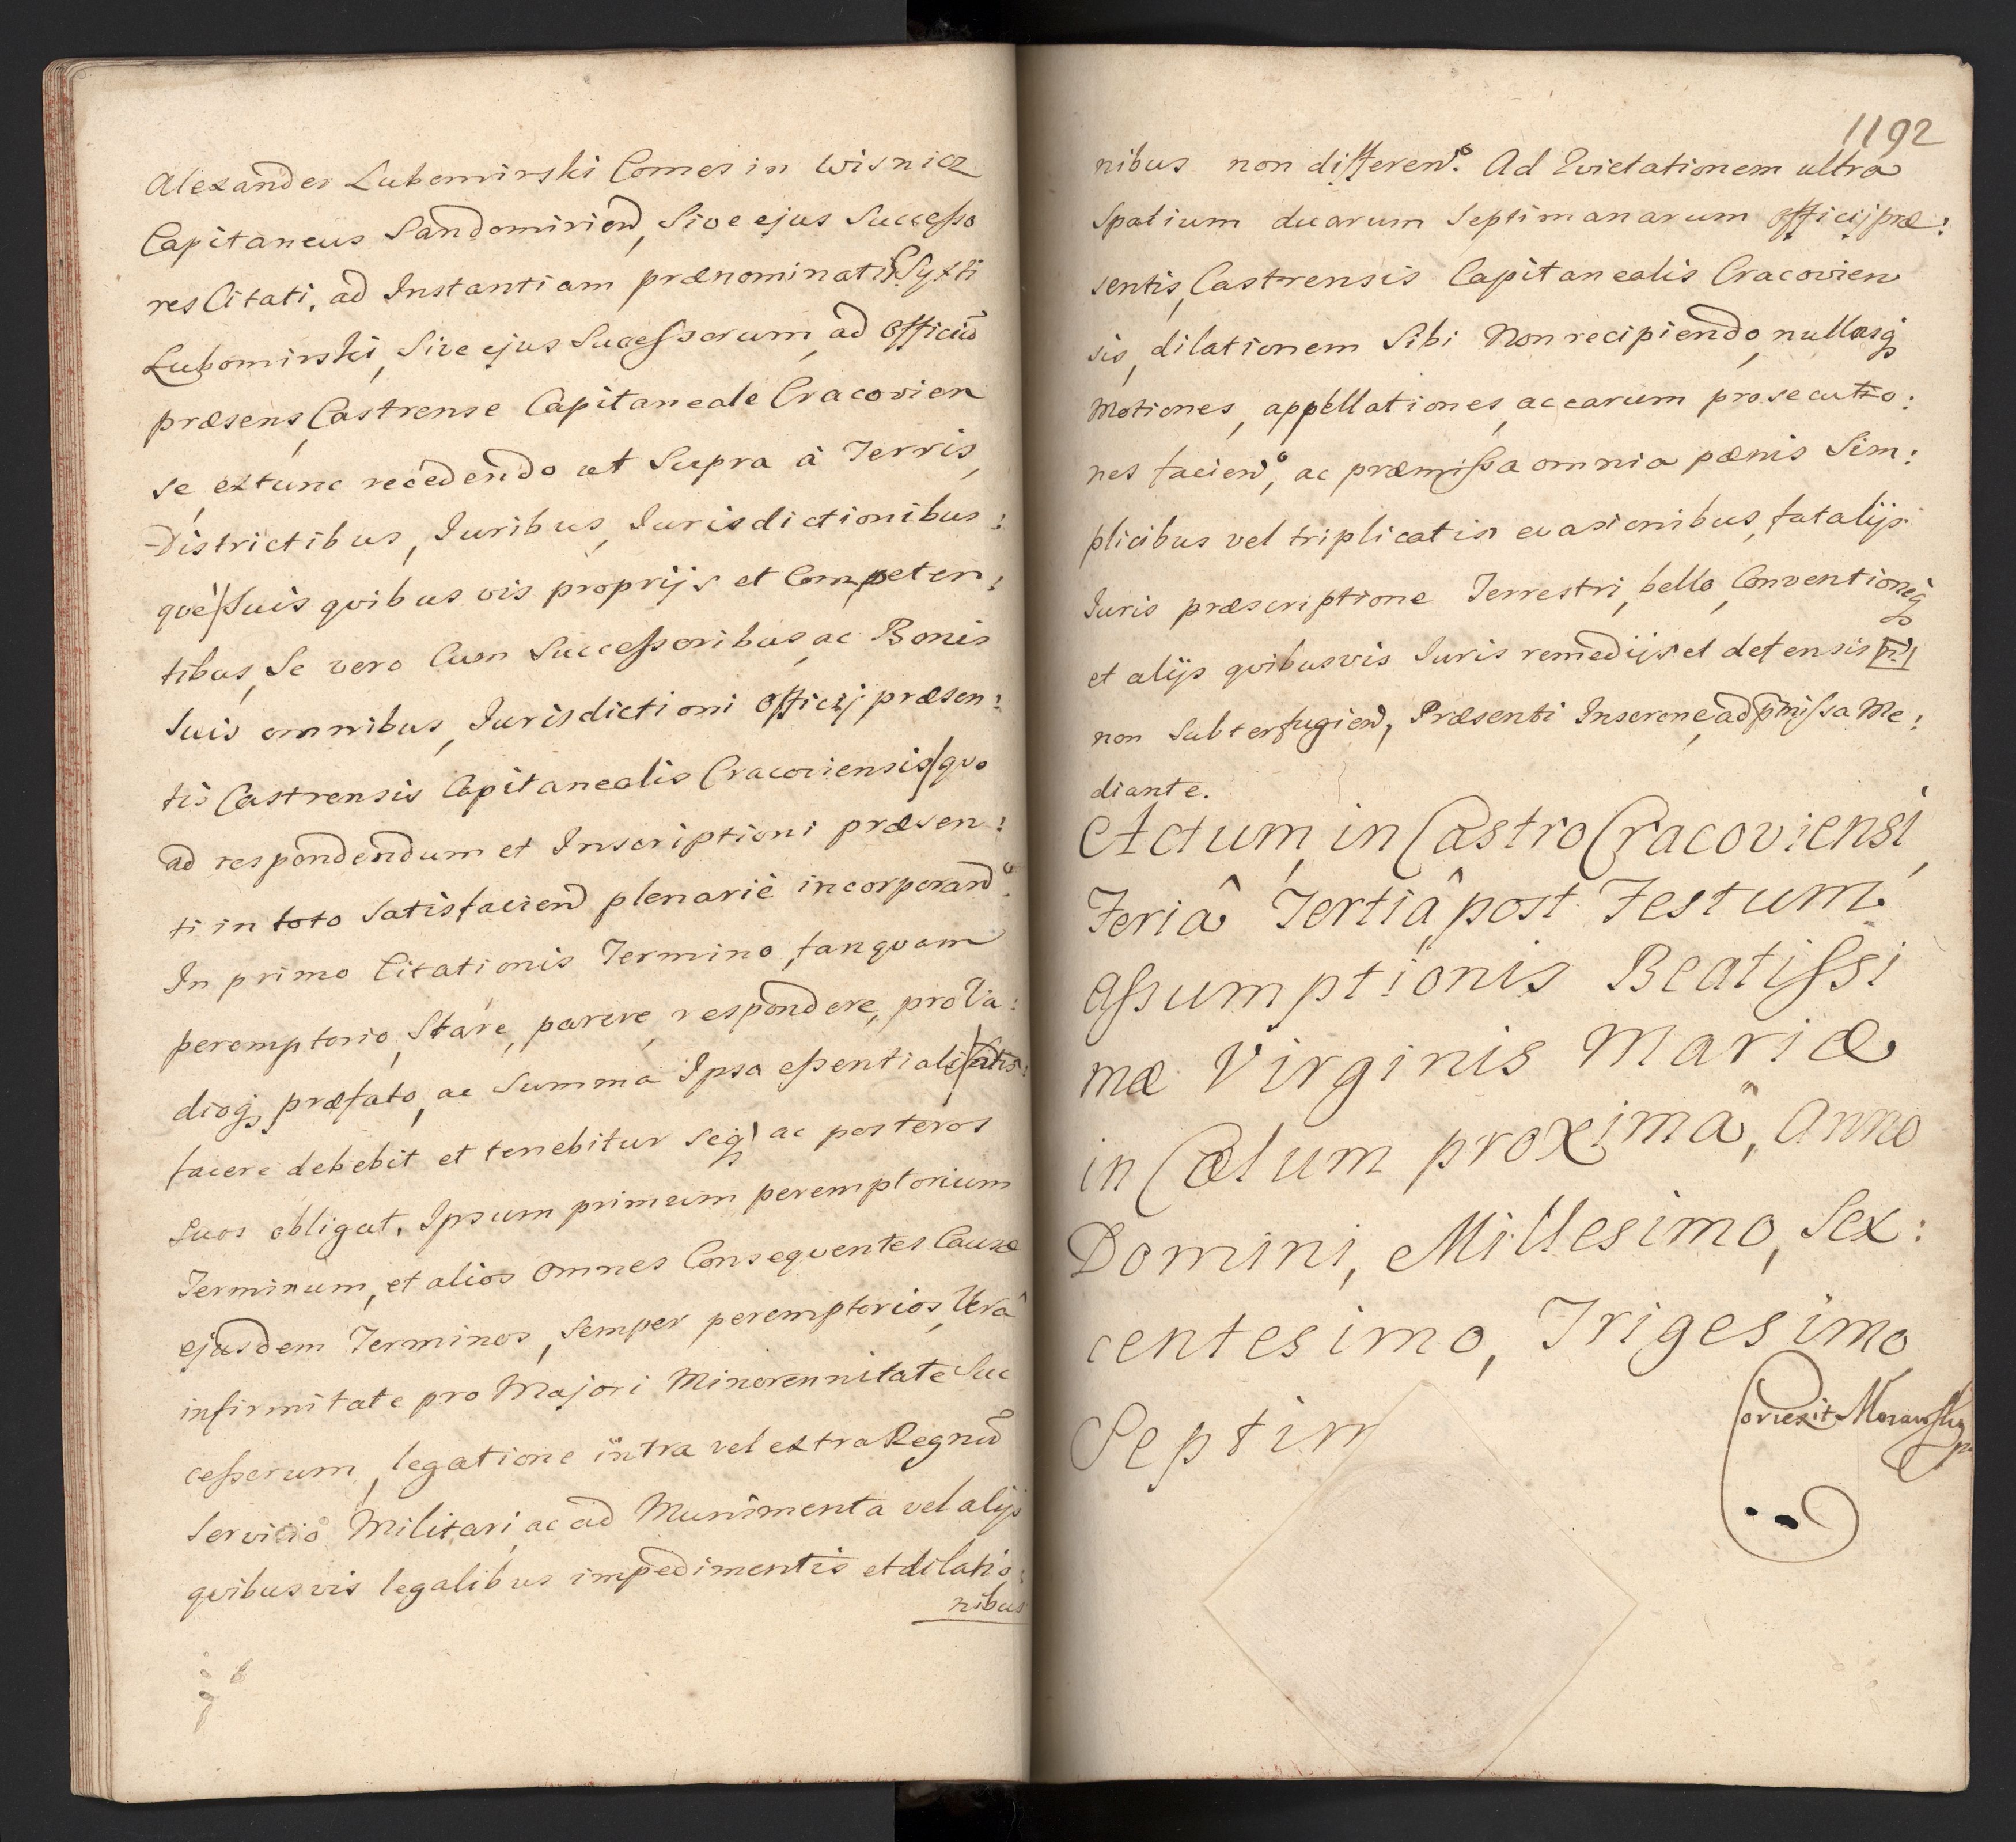 Alexander Lubomirski Comes in Wisnicz
Capitaneus Sandomirien, Sive ejus Successo
res Citati, ad Instantiam prænominati Syxti
Lubomirski, Sive ejus Sucessorum, ad Officiū
præsens, Castrense Capitaneale Cracovien
se, extunc recedendo ut Supra à Terris,
Districtibus, Iuribus, Iurisdictionibus:
què Suis qvibus vis proprijs et Competen:
tibus, Se vero Cum Successoribus, ac Bonis
Suis omnibus, Jurisdictioni Officij præsen:
tis Castrensis Capitanealis Cracoviensis qvo
ad respondendum et Inscriptioni præsen:
ti in toto Satisfaciend plenariè incorporand:º
In primo Citationis Termino, tanqvam
peremptorio, Stare, parere, respondere, pro Va:
dioq, præfato, ac Summa Ipsa essentiali satis:
facere debebit et tenebitur Seq ac posteros
Suos obligat. Ipsum primum peremptorium
Terminum, et alios omnes Conseqventes Causæ
ejusdem Terminos, Semper peremptorios, Verâ
infirmitate pro Majori Minorennitate Suc
cessorum, legatione intra vel extra Regnū
Servitio Militari, ac ad Munimenta vel alijs
qvibusvis legalibus impedimentis et dilatio:
nibus
1192
nibus non differend:º Ad Evictationem ultra
Spatium duarum Septimanarum Officij præ:
sentis, Castrensis Capitanealis Cracovien
sis, dilationem Sibi Non recipiendo, nullasq
Motiones, appellationes, ac earum prosecutio:
nes faciendº, ac præmissa omnia pœnis Sim:
plicibus vel triplicatis evasionibus, fatalijs
Iuris præscriptione Terrestri, bello, Conventioneq
et alijs qvibusvis Iuris remedijs et defensis
non Subterfugiend, Præsenti Inscrone, ad pmissa Me:
diante.
Actum, in Castro Cracoviensi,
Feriâ Tertiâ post Festum
Assumptionis Beatissi
mæ Virginis Mariæ
in Cœlum proximâ, Anno
Domini, Millesimo, Sex:
centesimo, Trigesimo
Septim
Correxit Morawsky